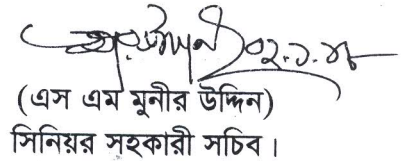 ০২.১.১৮
(এস এম মুনীর উদ্দিন)
সিনিয়র সহকারী সচিব।